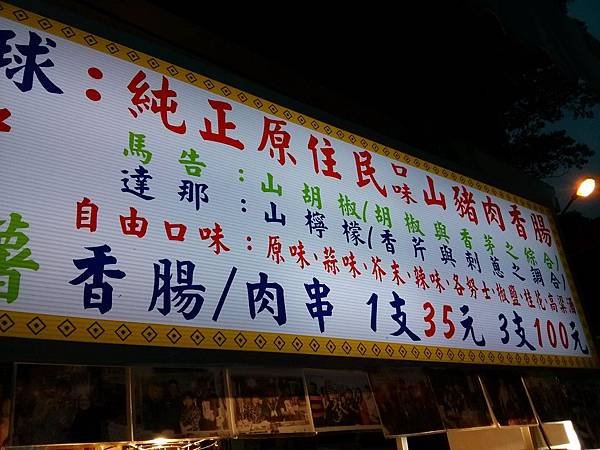 球：純正原住民口味山豬肉香腸
馬告：山胡椒/胡椒與香茅之綜合/
達那：山檸檬/香芹與刺蔥之調合/
自由口味：原味、蒜味、芥末、辣味、各努士、椒鹽、桂花、高粱酒
薯 香腸/肉串 1支35元 3支100元